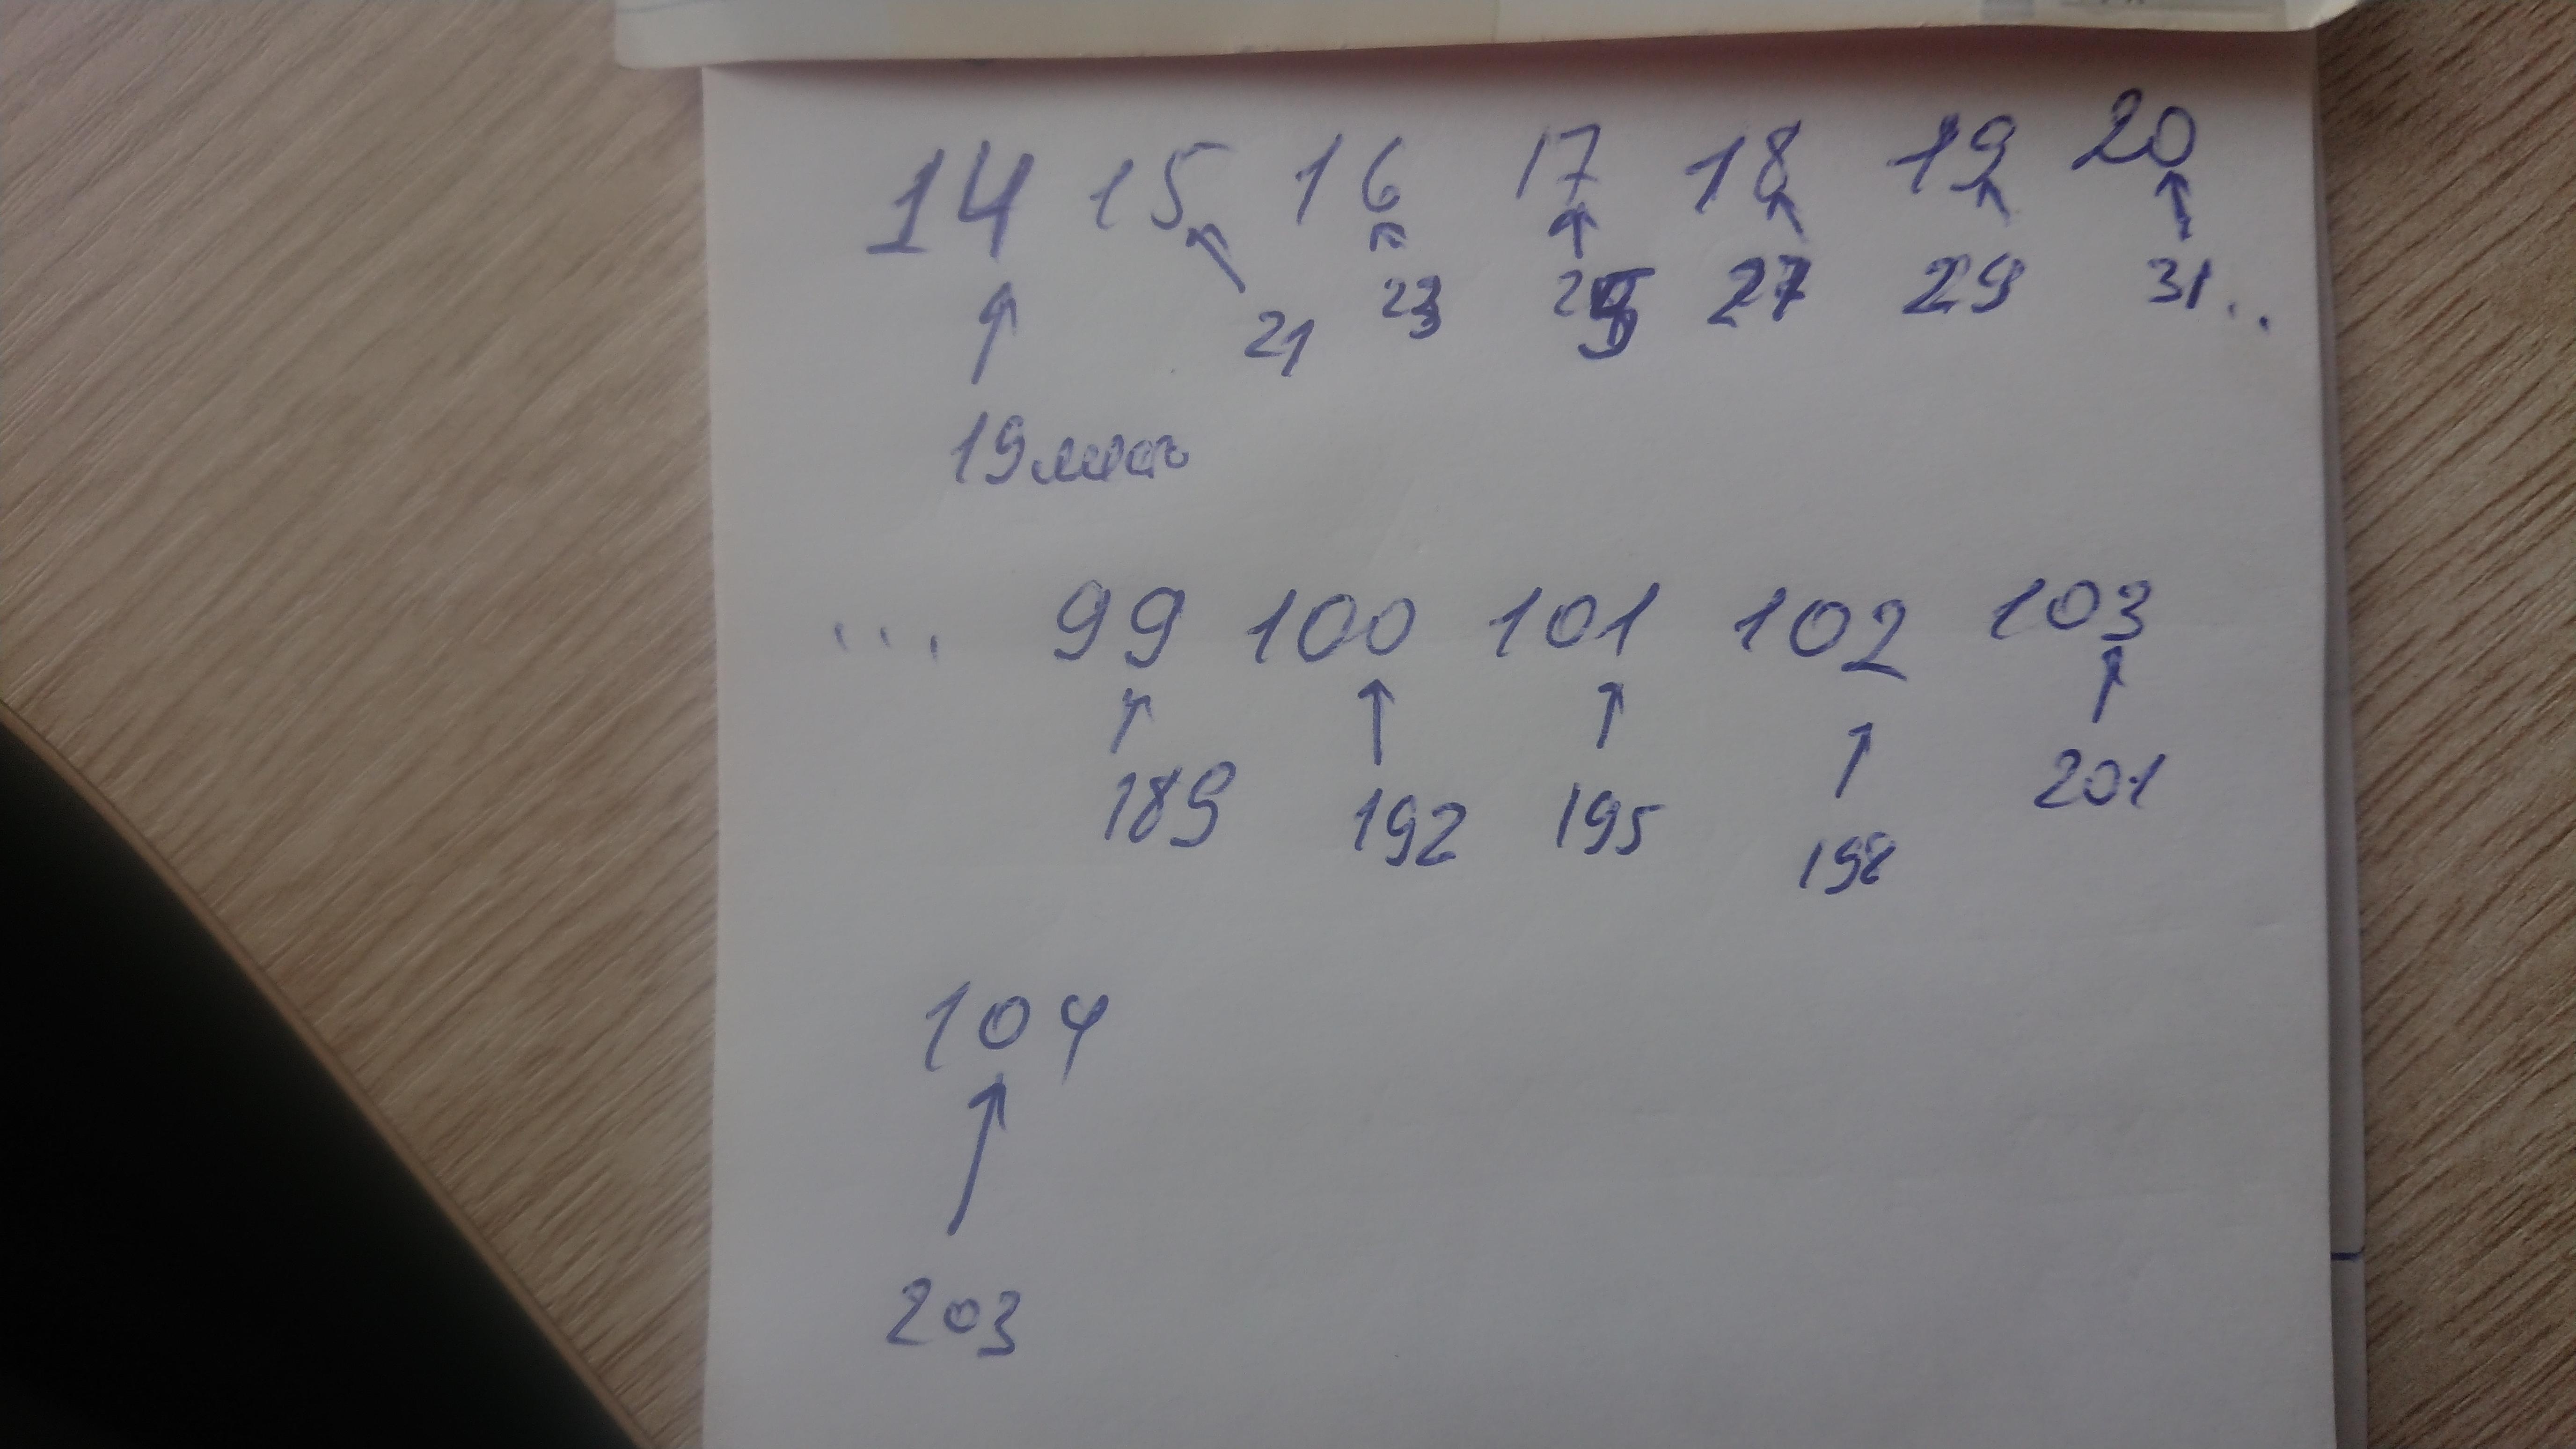 14 15 16 17 18 19 20
21 23 25 27 29 31..
19
... 99 100 101 102 103
189 192 195 198 201
104
203